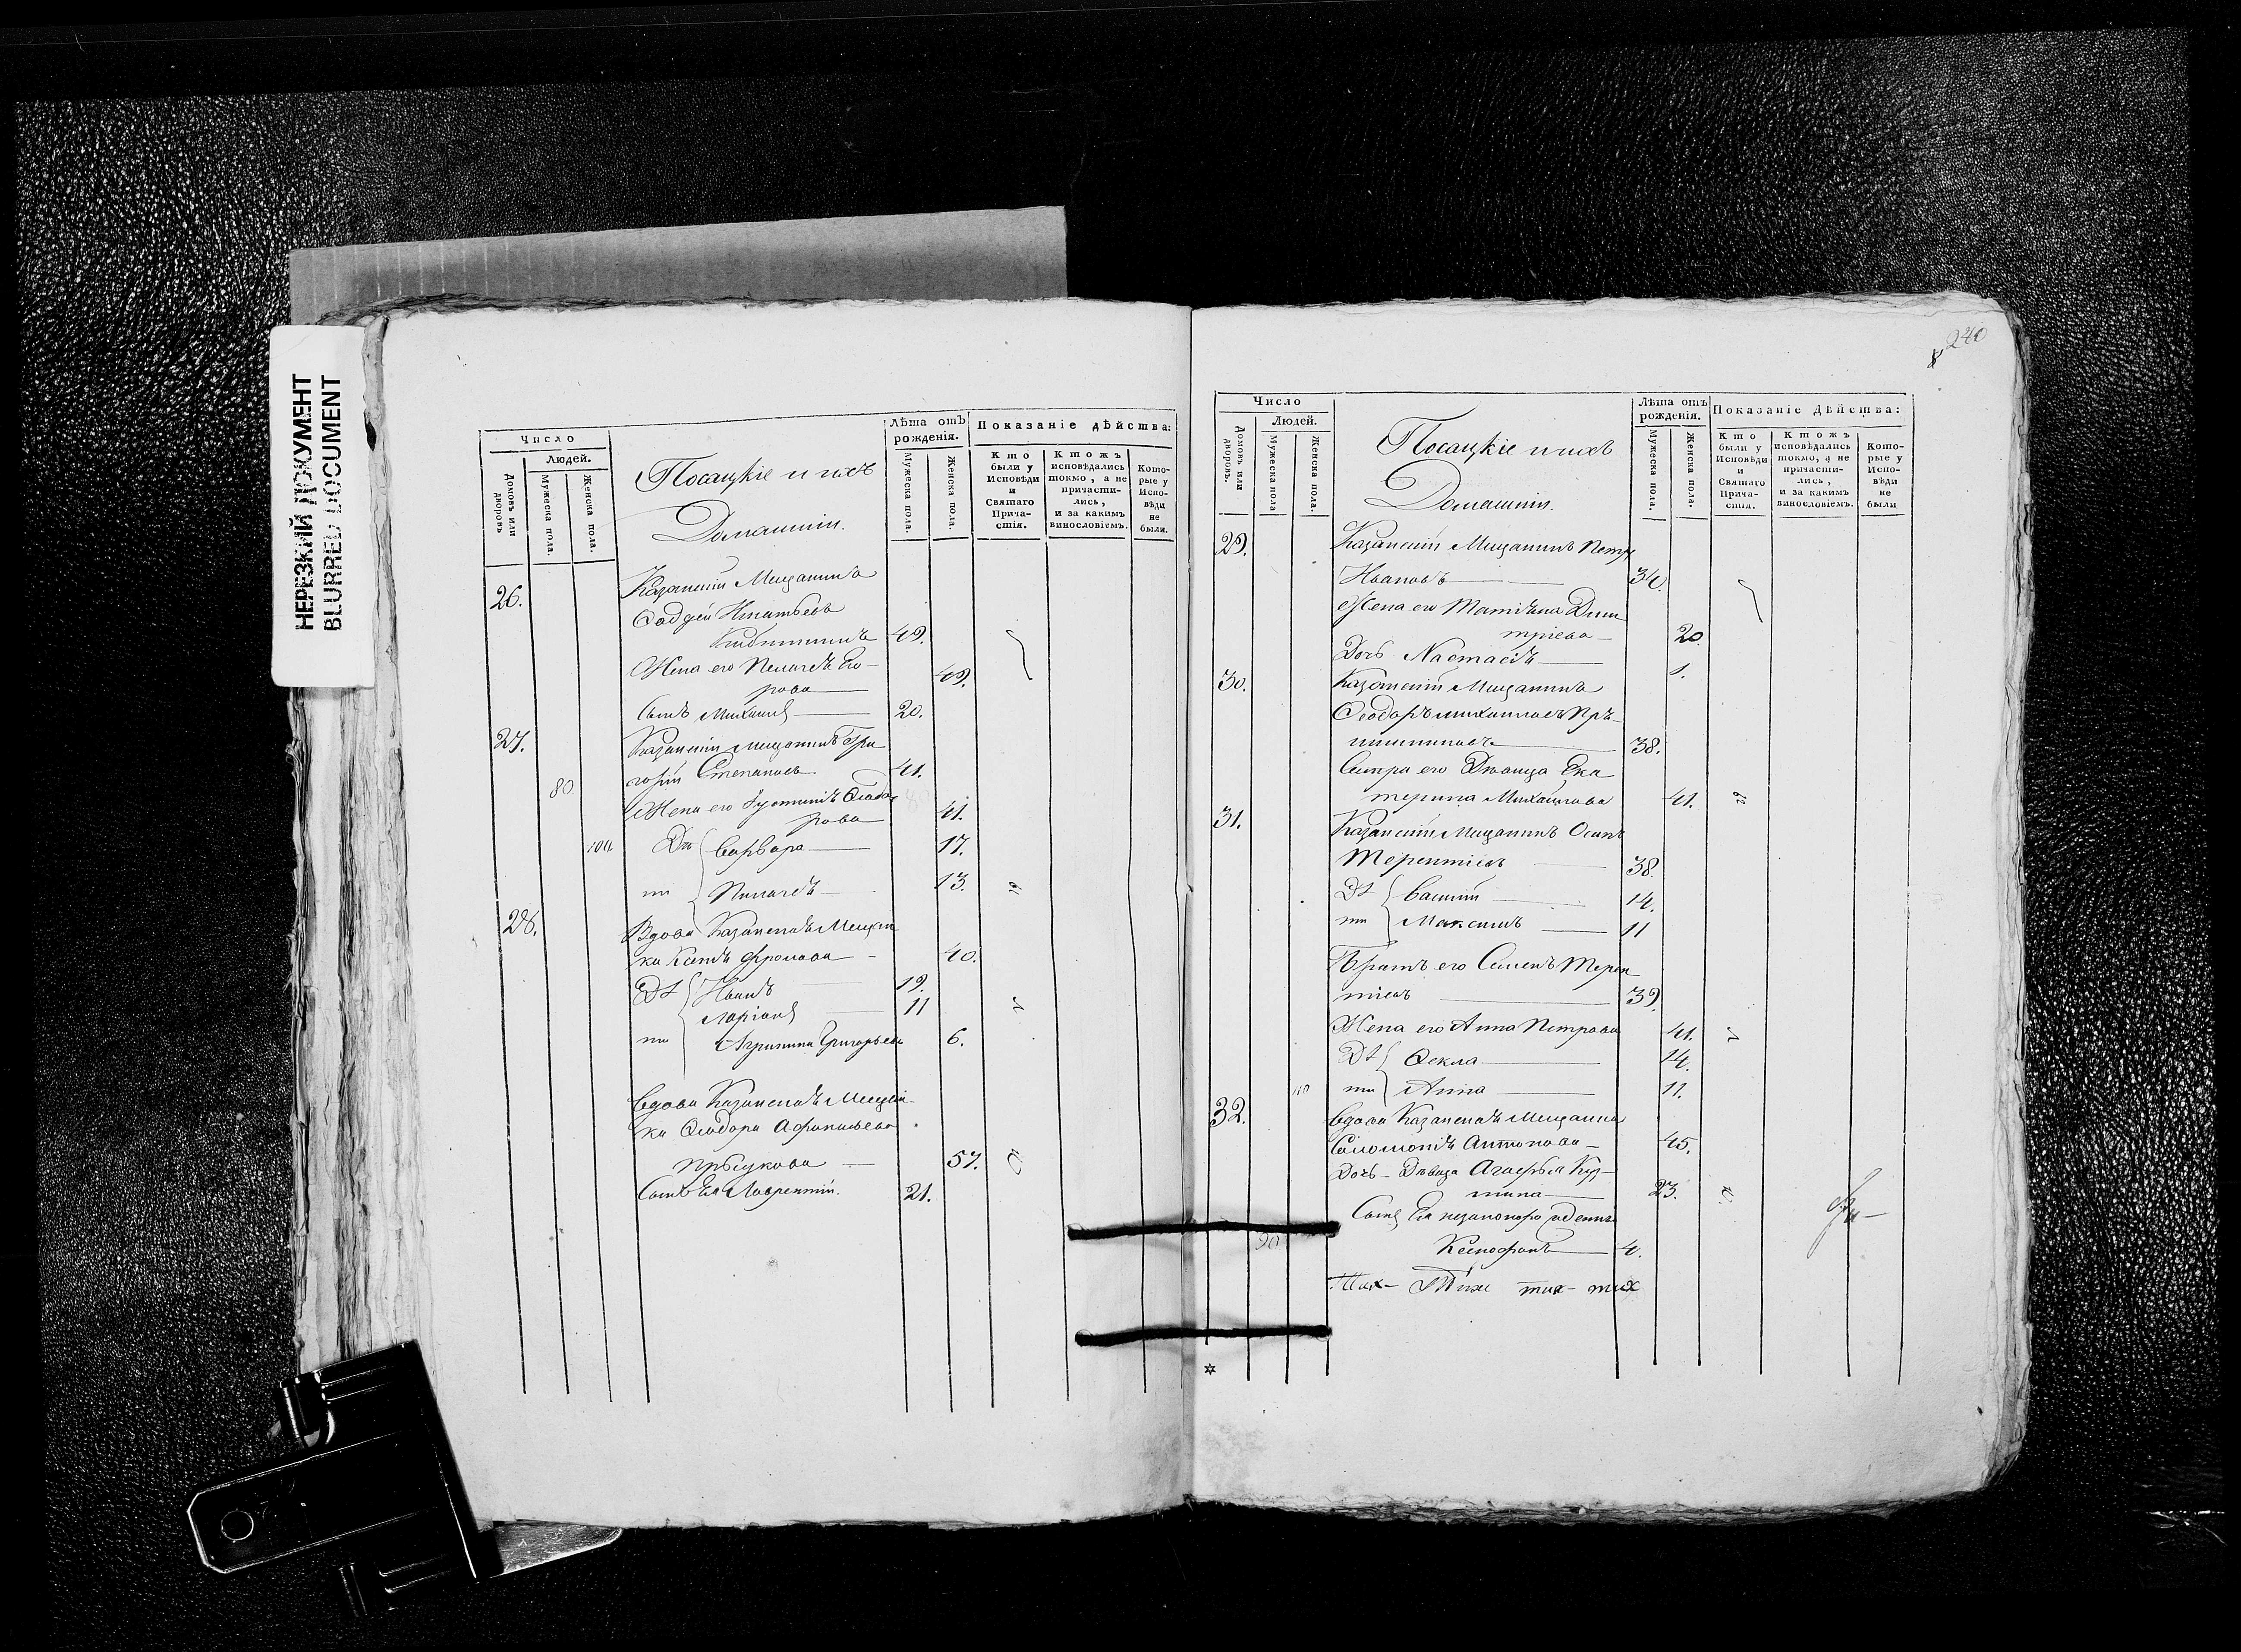 НЕРЕЗКИЙ ДОКУМЕНТ
BLURRED DOCUMENT
Число
Людей.
Домовъ или дворовъ
Мужеска пола.
Женска пола.
Посацкіе и ихъ
Домашніи.
Лѣта отъ рожденія.
Мужеска пола.
Женска пола.
Показаніе дѣйства:
Кто были у Исповѣди и Святаго Прича-стія.
Ктожъ исповѣдались токмо, а не причасти-лись, и за какимъ винословіемъ.
Кото-рые у Испо-вѣди не были.
26.
Казанскій Мещанинъ
Фаддей Игнатьевъ
49.
Жена его Пелагеѣ Его-
рова 49.
Сынъ Михаилъ 20.
27.
Казанскій мещанинъ Гри
горій Степановъ 41.
80
Жена его Устиніѣ Ѳеодо
рова 41.
104
Дѣ Варвара 17.
ти Пелагеѣ 13.
28.
Вдова Казанскаѣ Мещан
ка Фролова 40.
Дѣ Иванъ 19.
Ларіонъ 11
ти Агрипина Григорьева 6.
Вдова Казанскаѣ Мещан-
ка Ѳеодора Афонасьева
57.
Сынъ Ея Лаврентій. 21.
240
Число
Людей.
Домовъ или дворовъ.
Мужеска пола
Женска пола.
Посацкіе и ихъ
Домашніи.
Лѣта отъ рожденія.
Мужеска пола.
Женска пола.
Показаніе Дѣйства:
Кто были у Исповѣди и Святаго Прича-стія.
Ктожъ исповѣдались токмо, а не причасти-лись, и за какимъ винословіемъ.
Кото-рые у Испо-вѣди не были
29.
Казанскій Мещанинъ Петръ
Ивановъ 34.
Жена его Татіѣна Дми
тріева 20.
Дочь Настасіѣ 1.
30.
Казанскій Мещанинъ
Ѳеодоръ михаиловъ Прѣ-
38.
Сестра его Дѣвица Ека
терина Михайлова 41.
31.
Казанскій Мещанинъ Осипъ
Терентіевъ 38.
Дѣ Василій 14.
ти Максимъ 11
Братъ его Семенъ Терен
тіевъ 39.
Жена его Анна Петрова 41.
Дѣ Ѳекла 14.
110
ти Анна 11.
32.
Вдова Казанскаѣ Мещанка
Соломоніѣ Антонова 45.
Дочь Дѣвица Агафья Куз-
мина 23.
Сынъ Ея незаконорожденный
90
Ксенофонтъ 4.